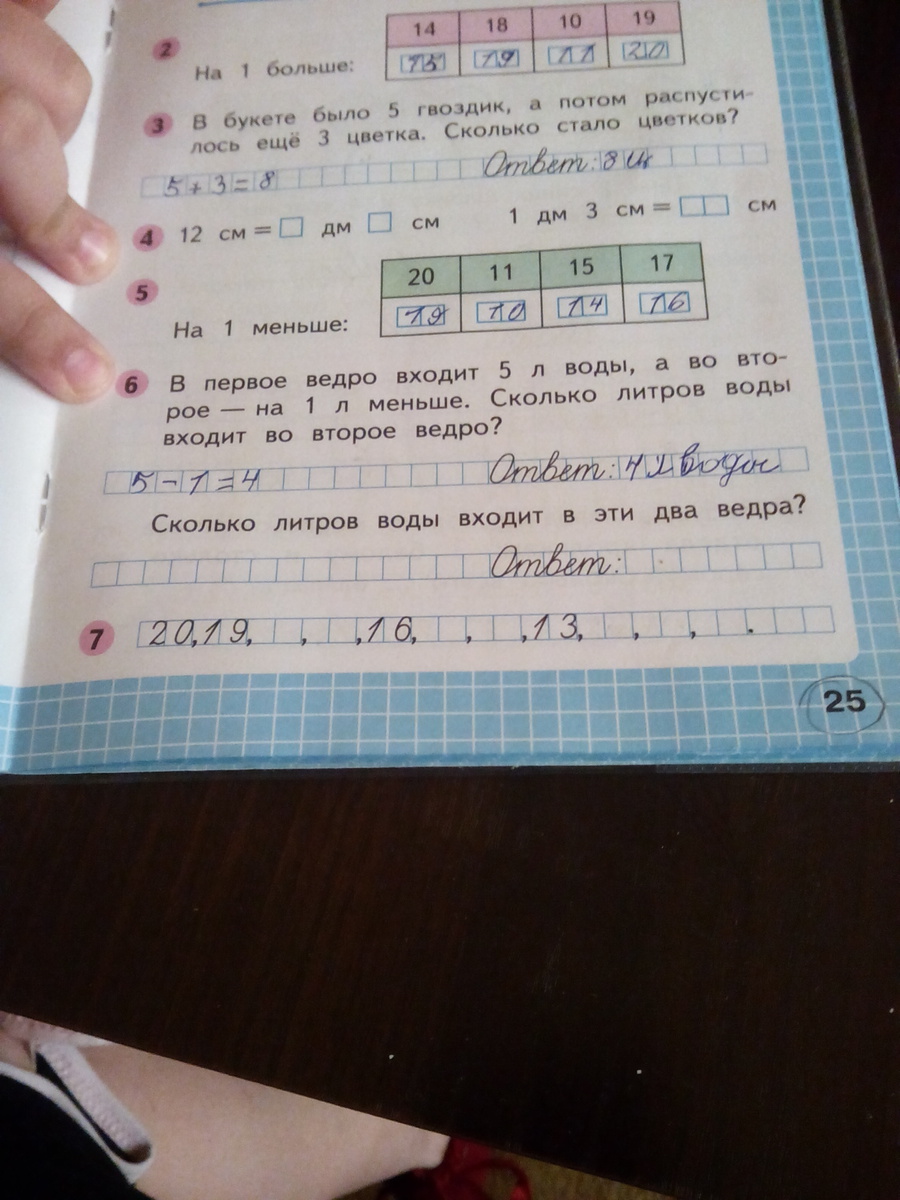 14 18 10 19
2
На 1 больше: 15 19 11 20
3 В букете было 5 гвоздик, а потом распусти-
лось ещё 3 цветка. Сколько стало цветков?
5+3=8 Ответ: 8 ц
4 12 см = дм см 1 дм 3 см = см
20 11 15 17
5
На 1 меньше: 19 10 14 16
6 В первое ведро входит 5 л воды, а во вто-
рое — на 1 л меньше. Сколько литров воды
входит во второе ведро?
5-1=4 Ответ: 4 л воды
Сколько литров воды входит в эти два ведра?
Ответ:
7 20,19, , ,16, , ,13, , , .
25